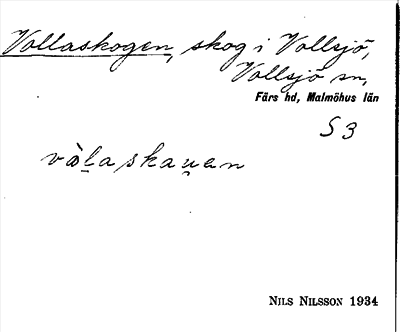 Vollaskogen, skog i Vollsjö,
Vollsjö sn,
Färs hd, Malmöhus län
S3
vàl̲askau̯en
NILS NILSSON 1934